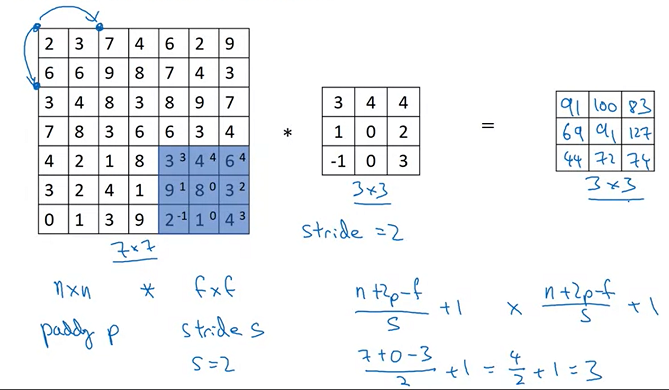 2 3 7 4 6 2 9
6 6 9 8 7 4 3
3 4 8 3 8 9 7
7 8 3 6 6 3 4
4 2 1 8 3 3 4 4 6 4
3 2 4 1 9 1 8 0 3 2
0 1 3 9 2 -1 1 0 4 3
7×7
*
3 4 4
1 0 2
-1 0 3
3×3
stride = 2
=
91 100 83
69 91 127
44 72 74
3×3
n×n * f×f
paddy p stride s
s=2
n+2p-f / s + 1 × n+2p-f / s + 1
7+0-3 / 2 + 1 = 4 / 2 + 1 = 3